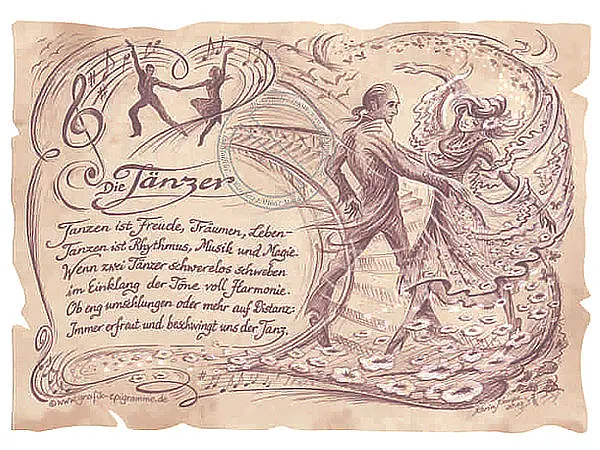 Die Tänzer
Tanzen ist Freude, Träumen, Leben-
Tanzen ist Rhythmus, Musik und Magie.
Wenn zwei Tänzer schwerelos schweben
im Einklang der Töne voll Harmonie.
Ob eng umschlungen oder mehr auf Distanz:
Immer erfreut und beschwingt uns der Tanz.
©www.grafik-epigramme.de